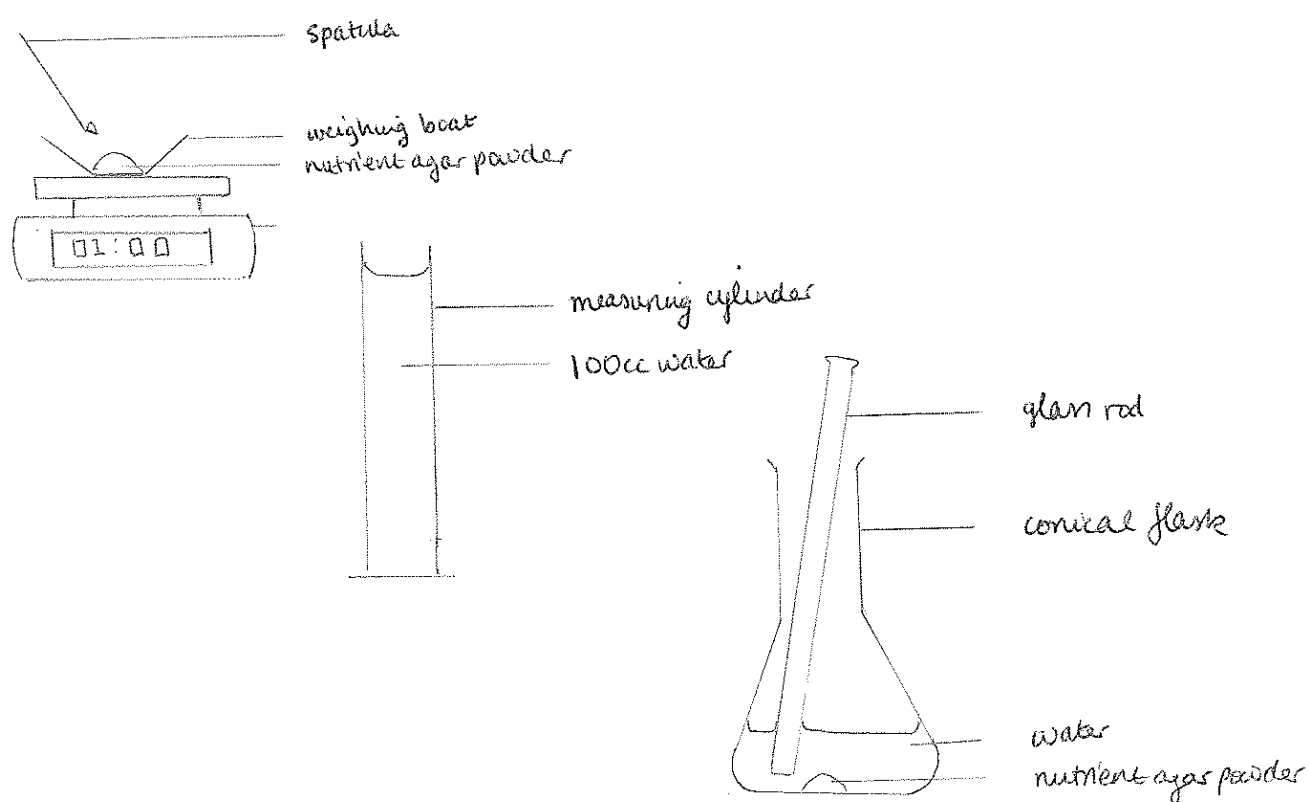 spatula
weighing boat
nutrient agar powder
01:00
measuring cylinder
100cc water
glass rod
conical flask
water
nutrient agar powder